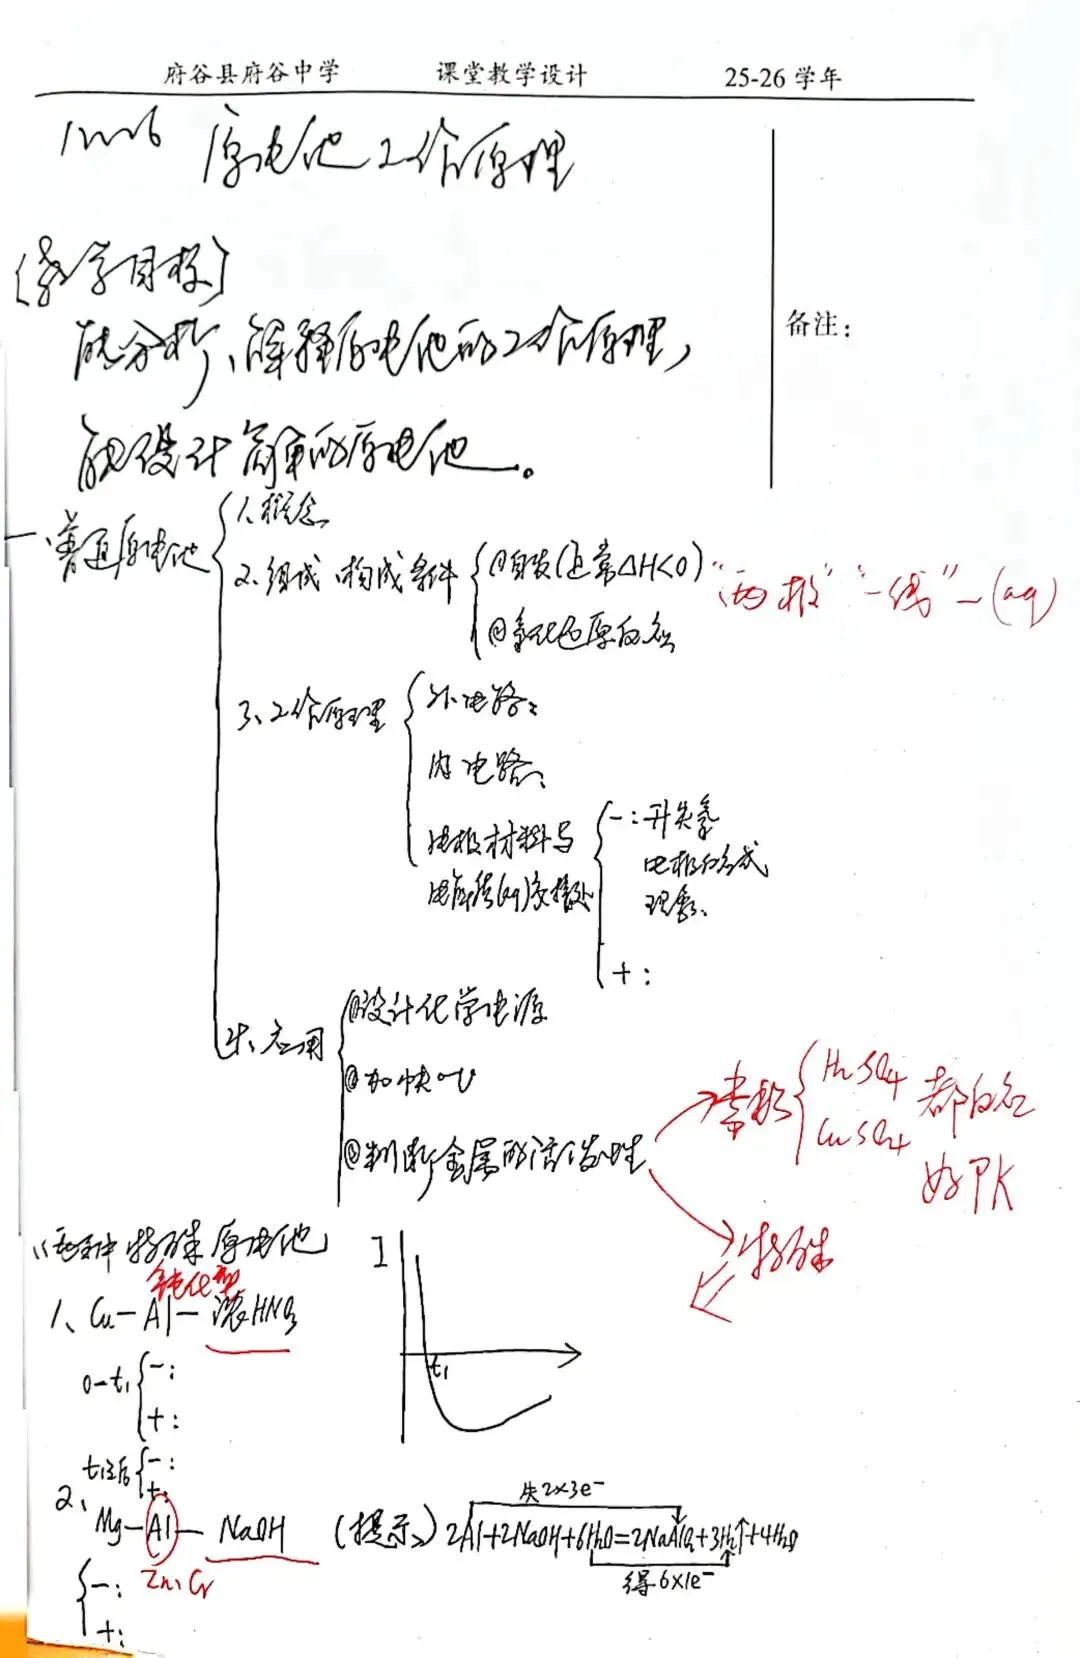 府谷县府谷中学 课堂教学设计 25-26 学年
原电池工作原理
备注：
[教学目标]
能分析、解释原电池的工作原理，
能设计简单的原电池。
一、普通原电池
1、概念
2、组成、构成条件
①自发(通常△H<0) "两极" "一线" 一(aq)
②氧化还原反应
3、工作原理
外电路：
内电路：
电极材料与
电解质(aq)交接处
－：升失氧
电极反应式
现象：
＋：
4、应用
①设计化学电源
②加快
③判断金属的活泼性
常规
H₂SO₄
CuSO₄
都反应
好PK
特殊
二、两种特殊原电池
钝化型
1、Cu－Al－浓HNO₃
0－t₁
－：
＋：
t₁以后
－：
＋：
I
t₁
2、Mg－Al－NaOH
Zn、Cr
－：
＋：
(提示、) 2Al+2NaOH+6H₂O=2NaAlO₂+3H₂↑+4H₂O
失2×3e⁻
得6×1e⁻